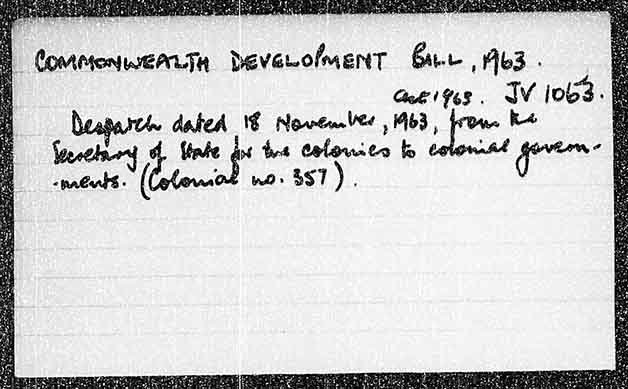 COMMONWEALTH DEVELOPMENT BILL, 1963.
1963. JV 1063.
Despatch dated 18 November, 1963, from the
Secretary of State for the colonies to colonial govern-
-ments. (Colonial no. 357).